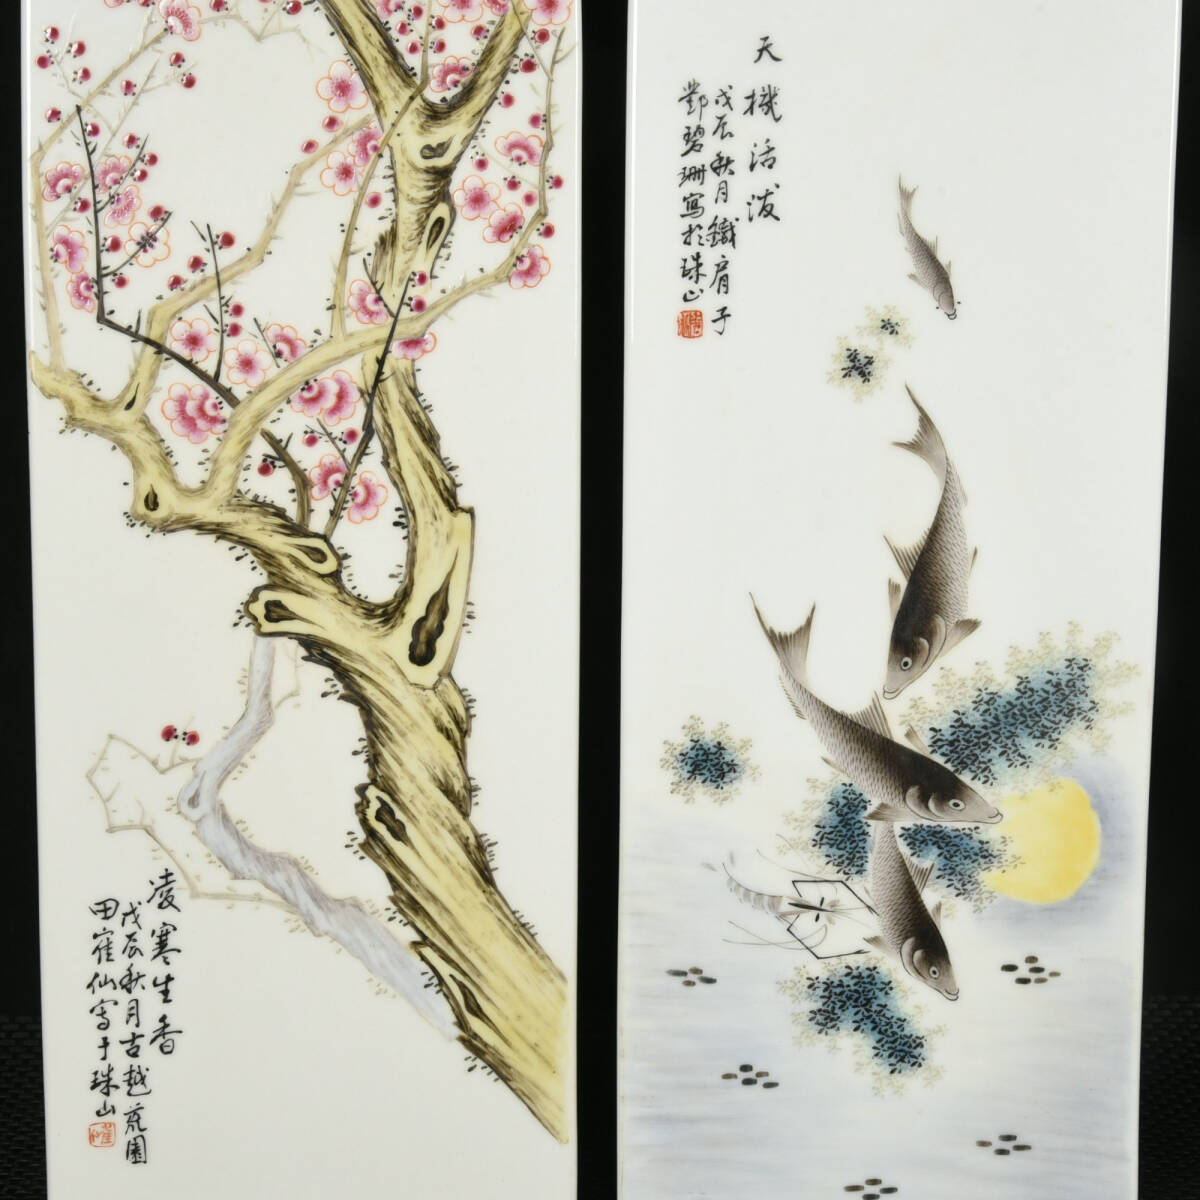 凌寒生香
戊辰秋月古越荒園
田崔仙寫于珠山
天機活潑
戊辰秋月鐵肩子
鄧碧珊寫於珠山